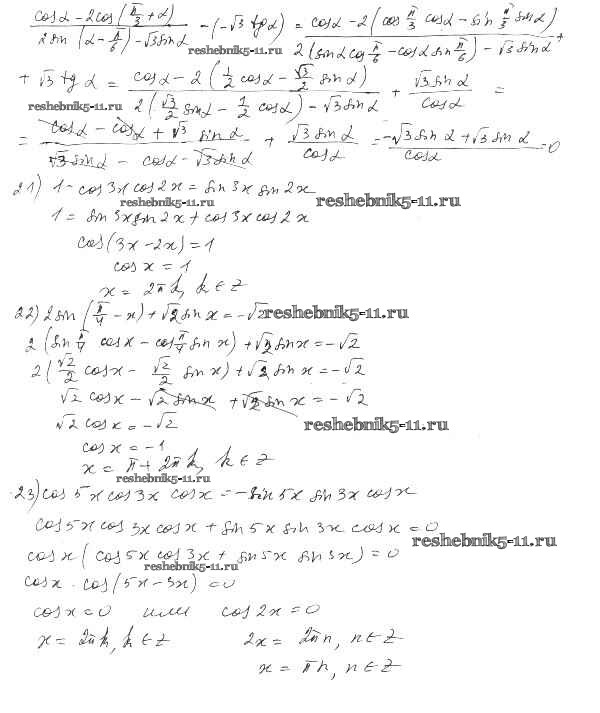 (cosα - 2cos(π/3 + α)) / (2sin(α - π/6) - √3 sinα) - (-√3 tgα) = (cosα - 2(cos π/3 cosα - sin π/3 sinα)) / (2(sinα cos π/6 - cosα sin π/6) - √3 sinα) +
reshebnik5-11.ru
+ √3 tgα = (cosα - 2(1/2 cosα - √3/2 sinα)) / (2(√3/2 sinα - 1/2 cosα) - √3 sinα) + √3 sinα / cosα =
reshebnik5-11.ru
= (cosα - cosα + √3 sinα) / (√3 sinα - cosα - √3 sinα) + √3 sinα / cosα = (-√3 sinα + √3 sinα) / cosα = 0
21) 1 - cos3x cos2x = sin3x sin2x
reshebnik5-11.ru reshebnik5-11.ru
1 = sin3x sin2x + cos3x cos2x
cos(3x - 2x) = 1
cos x = 1
x = 2πk, k ∈ Z
22) 2sin(π/4 - x) + √2 sinx = -√2
reshebnik5-11.ru
2(sin π/4 cosx - cos π/4 sinx) + √2 sinx = -√2
2(√2/2 cosx - √2/2 sinx) + √2 sinx = -√2
√2 cosx - √2 sinx + √2 sinx = -√2
√2 cosx = -√2
reshebnik5-11.ru
cosx = -1
x = π + 2πk, k ∈ Z
reshebnik5-11.ru
23) cos5x cos3x cosx = -sin5x sin3x cosx
cos5x cos3x cosx + sin5x sin3x cosx = 0
reshebnik5-11.ru
cosx(cos5x cos3x + sin5x sin3x) = 0
reshebnik5-11.ru
cosx · cos(5x - 3x) = 0
cosx = 0 или cos2x = 0
x = 2πk, k ∈ Z 2x = 2πn, n ∈ Z
x = πn, n ∈ Z